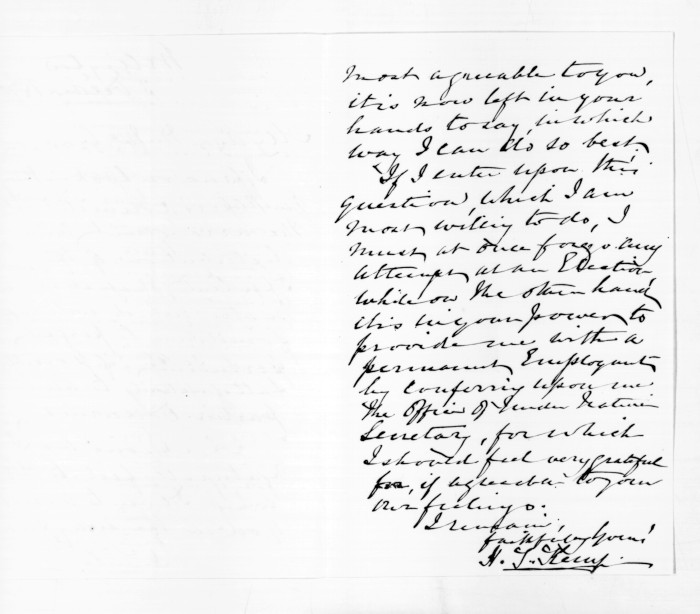 most agreeable to you,
it is now left in your
hands to say, in which
way I can do so best.
"If I enter upon this
question, which I am
most willing to do, I
must at once forego any
attempt at an Election
while on the other hand
it is in your power to
provide me with a
permanent Employment
by conferring upon me
the Office of Under Native
Secretary, for which
I should feel very grateful
for, if agreeable to your
own feelings.
I remain,
faithfully Yours
H. T. Kemp.